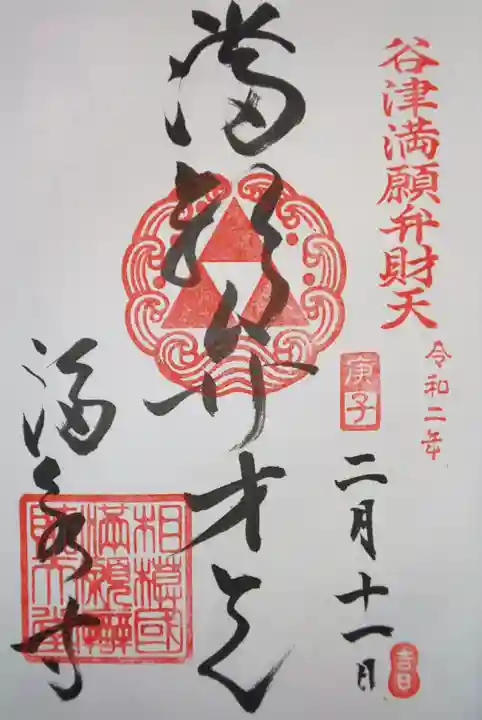 谷津満願弁財天
令和二年
庚子
二月十一日
吉日
満願弁才天
満願寺
相模國
満願辨
財天堂